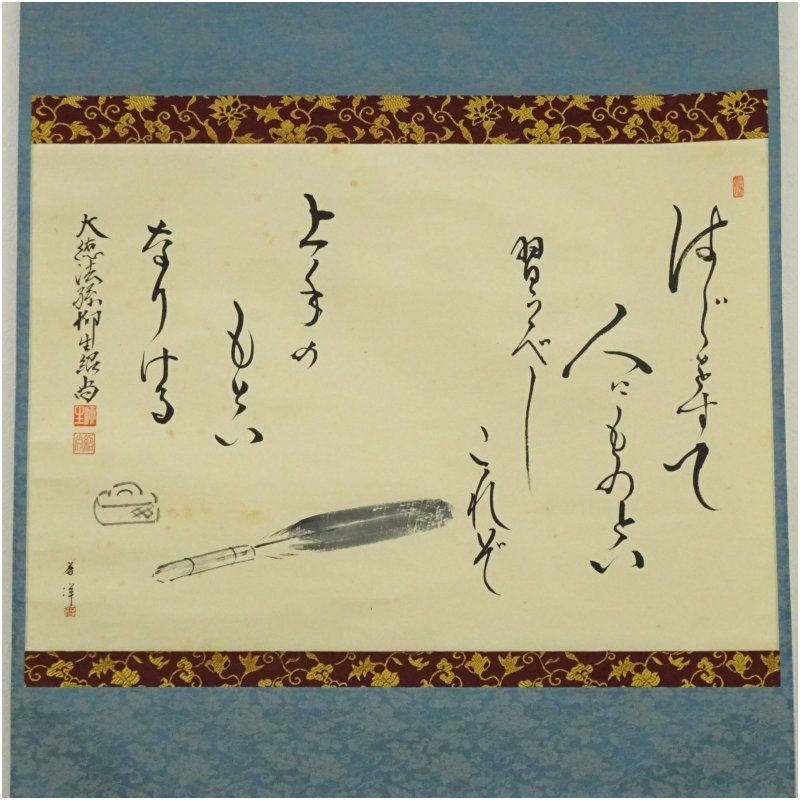 はじをすて
人にものとい
習うべし
これぞ
上手の
もとい
なりける
大徳法孫柳生紹尚